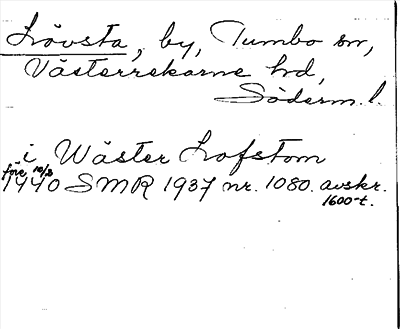 Lövsta, by, Tumbo sn,
Västerrekarne hd,
Söderm. l.
i Wäster Lofstom
före 10/3
1440 SMR 1937 nr. 1080. avskr.
1600-t.